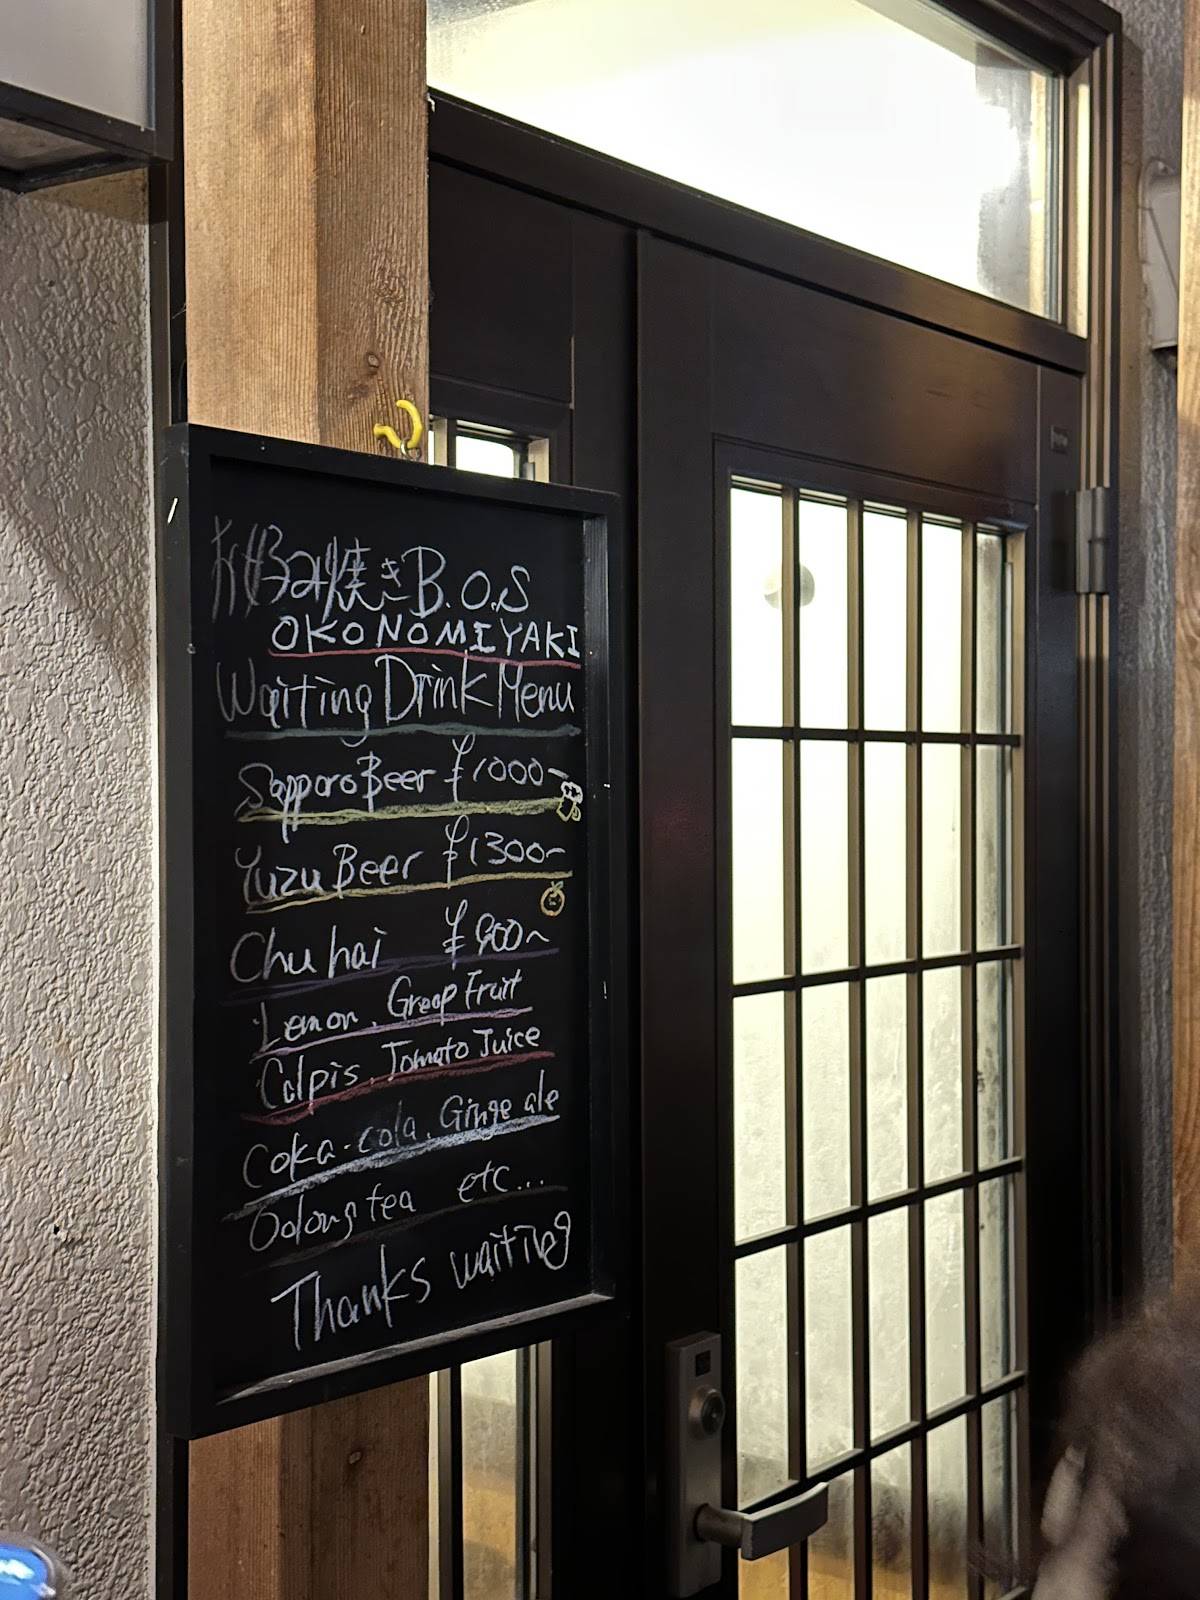 お好み焼きB.O.S
OKONOMIYAKI
Waiting Drink Menu
Sapporo Beer ¥1000~
Yuzu Beer ¥1300~
Chu hai ¥900~
Lemon, Greap Fruit
Calpis, Tomato Juice
Coka-cola, Ginge ale
Oolong tea etc...
Thanks waiting